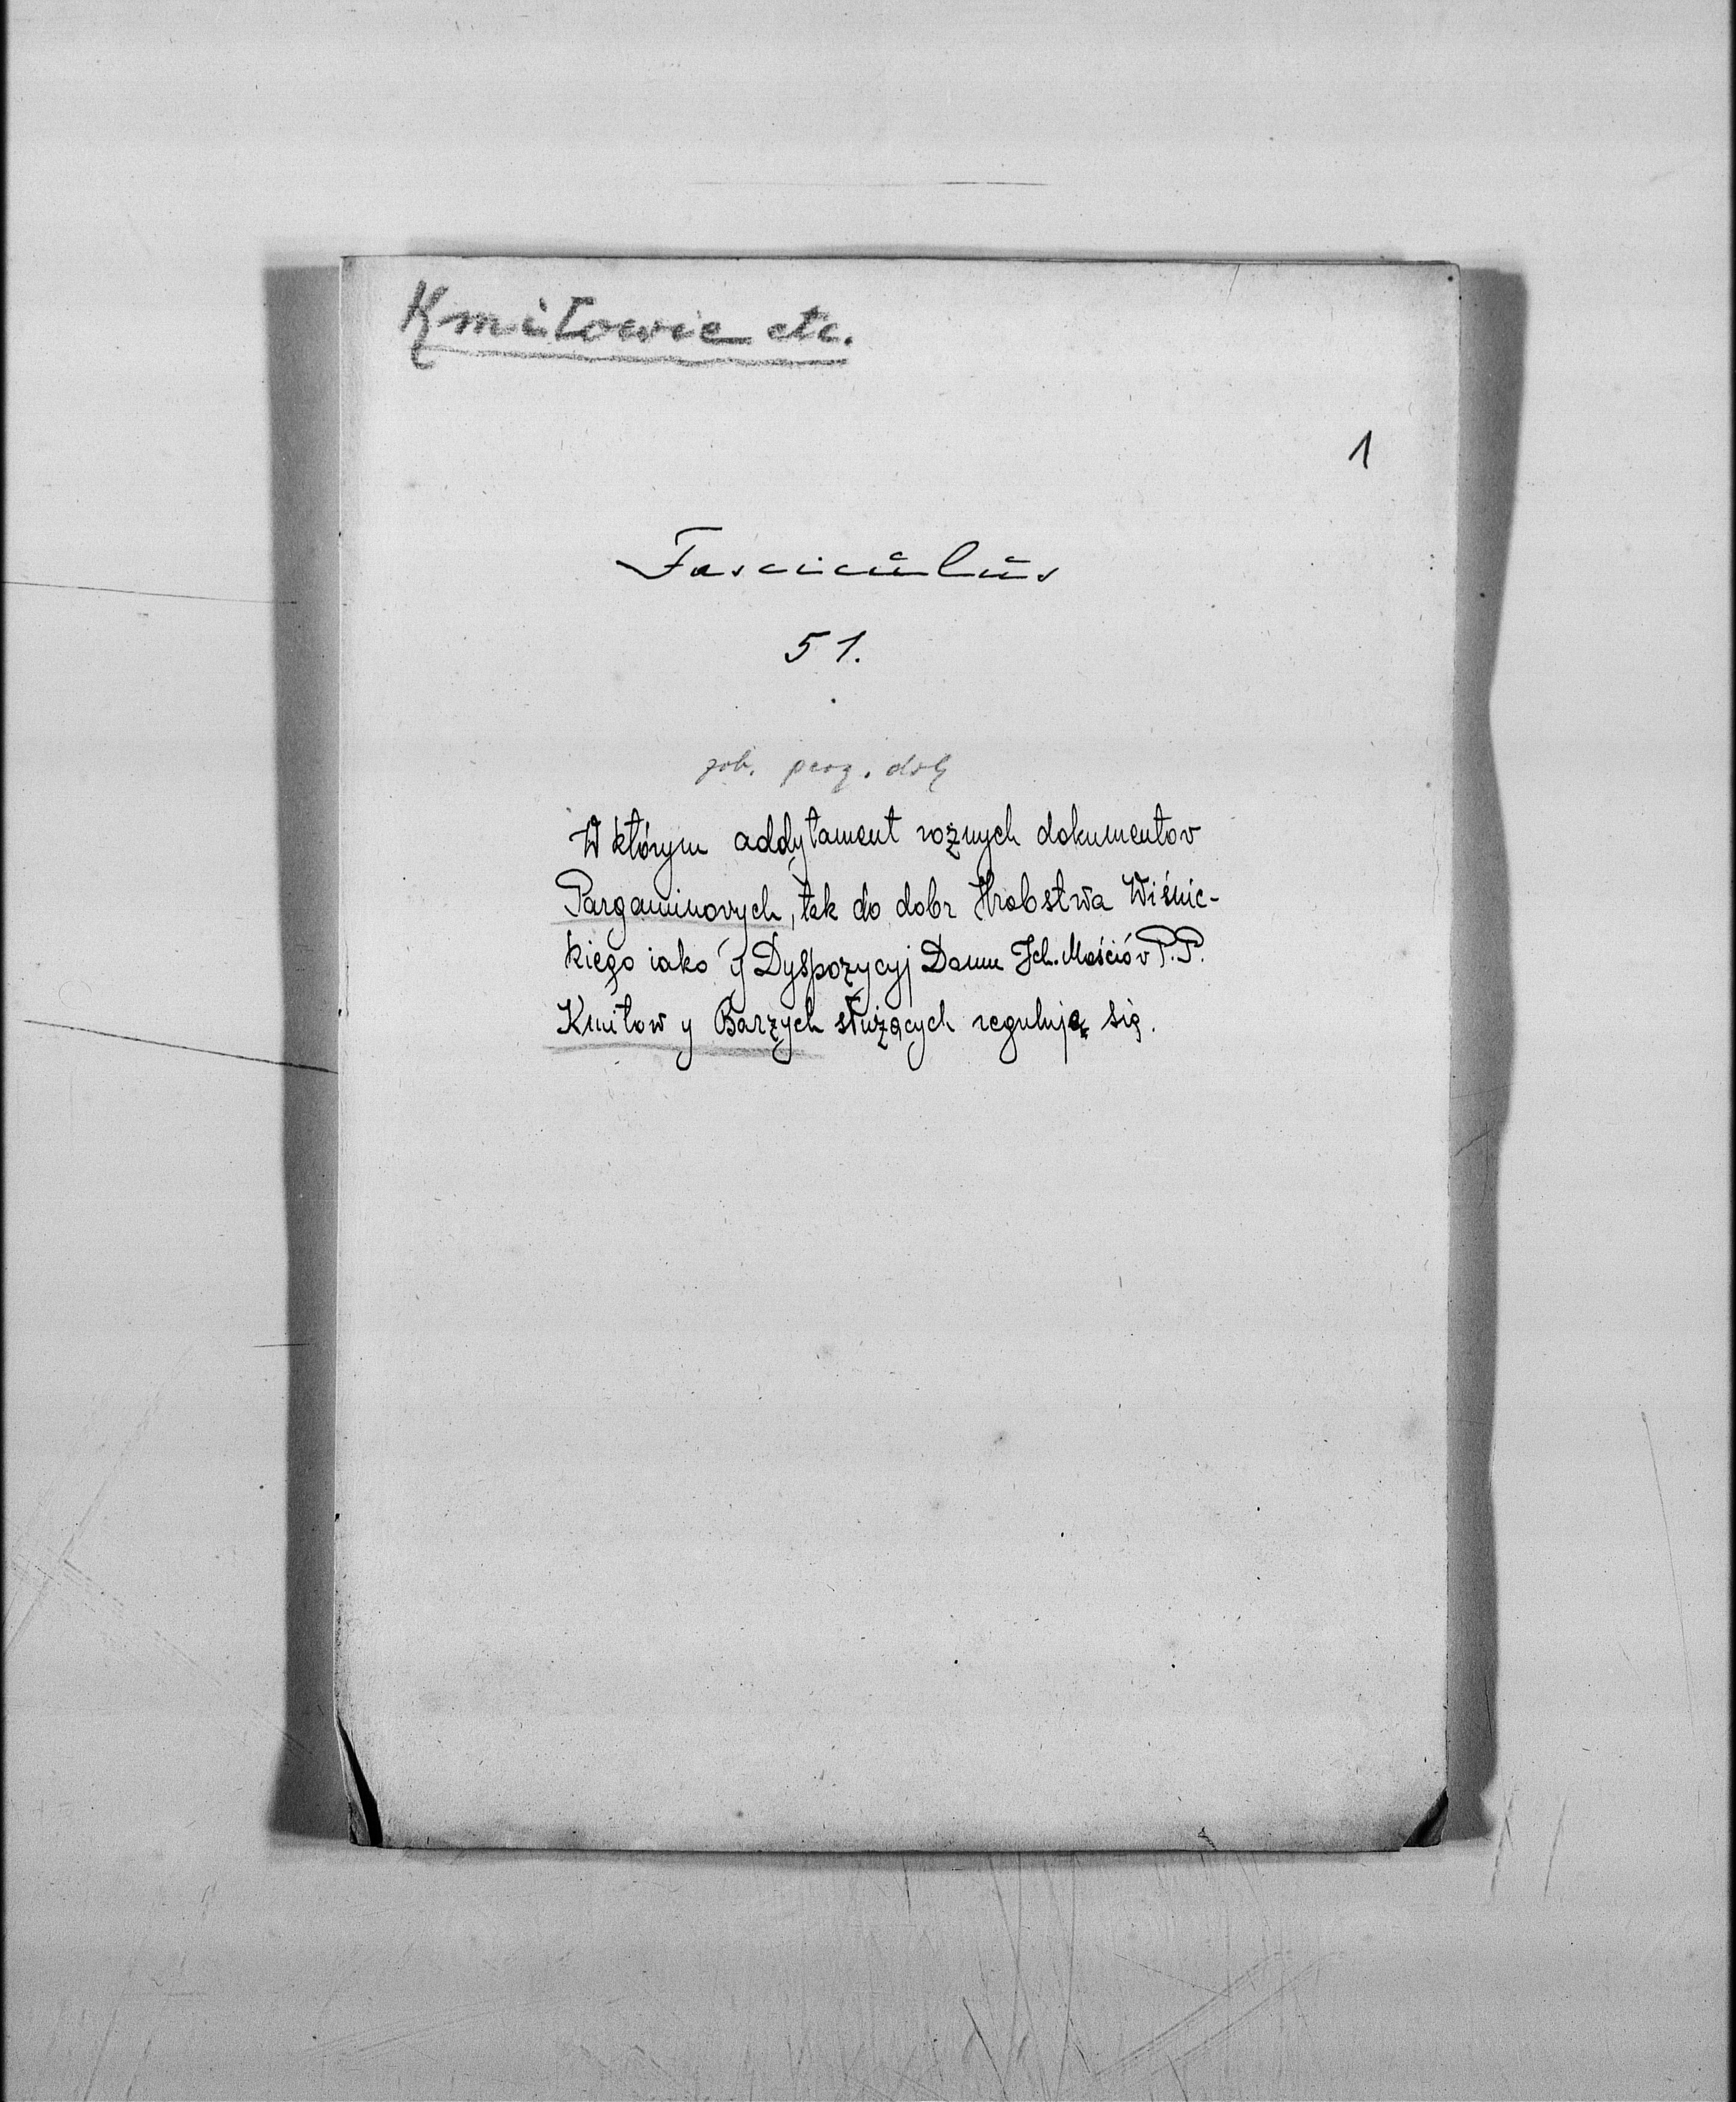 Kmitowie etc.
1
Fasciculus
51.
W którym addytament rożnych dokumentov
Pargaminovych, tak do dobr Hrabstwa Wiśnic-
kiego iako y Dyspozycyj Domu Ich. Mościóv P.P.
Kmitow y Barzych służących regulują się.